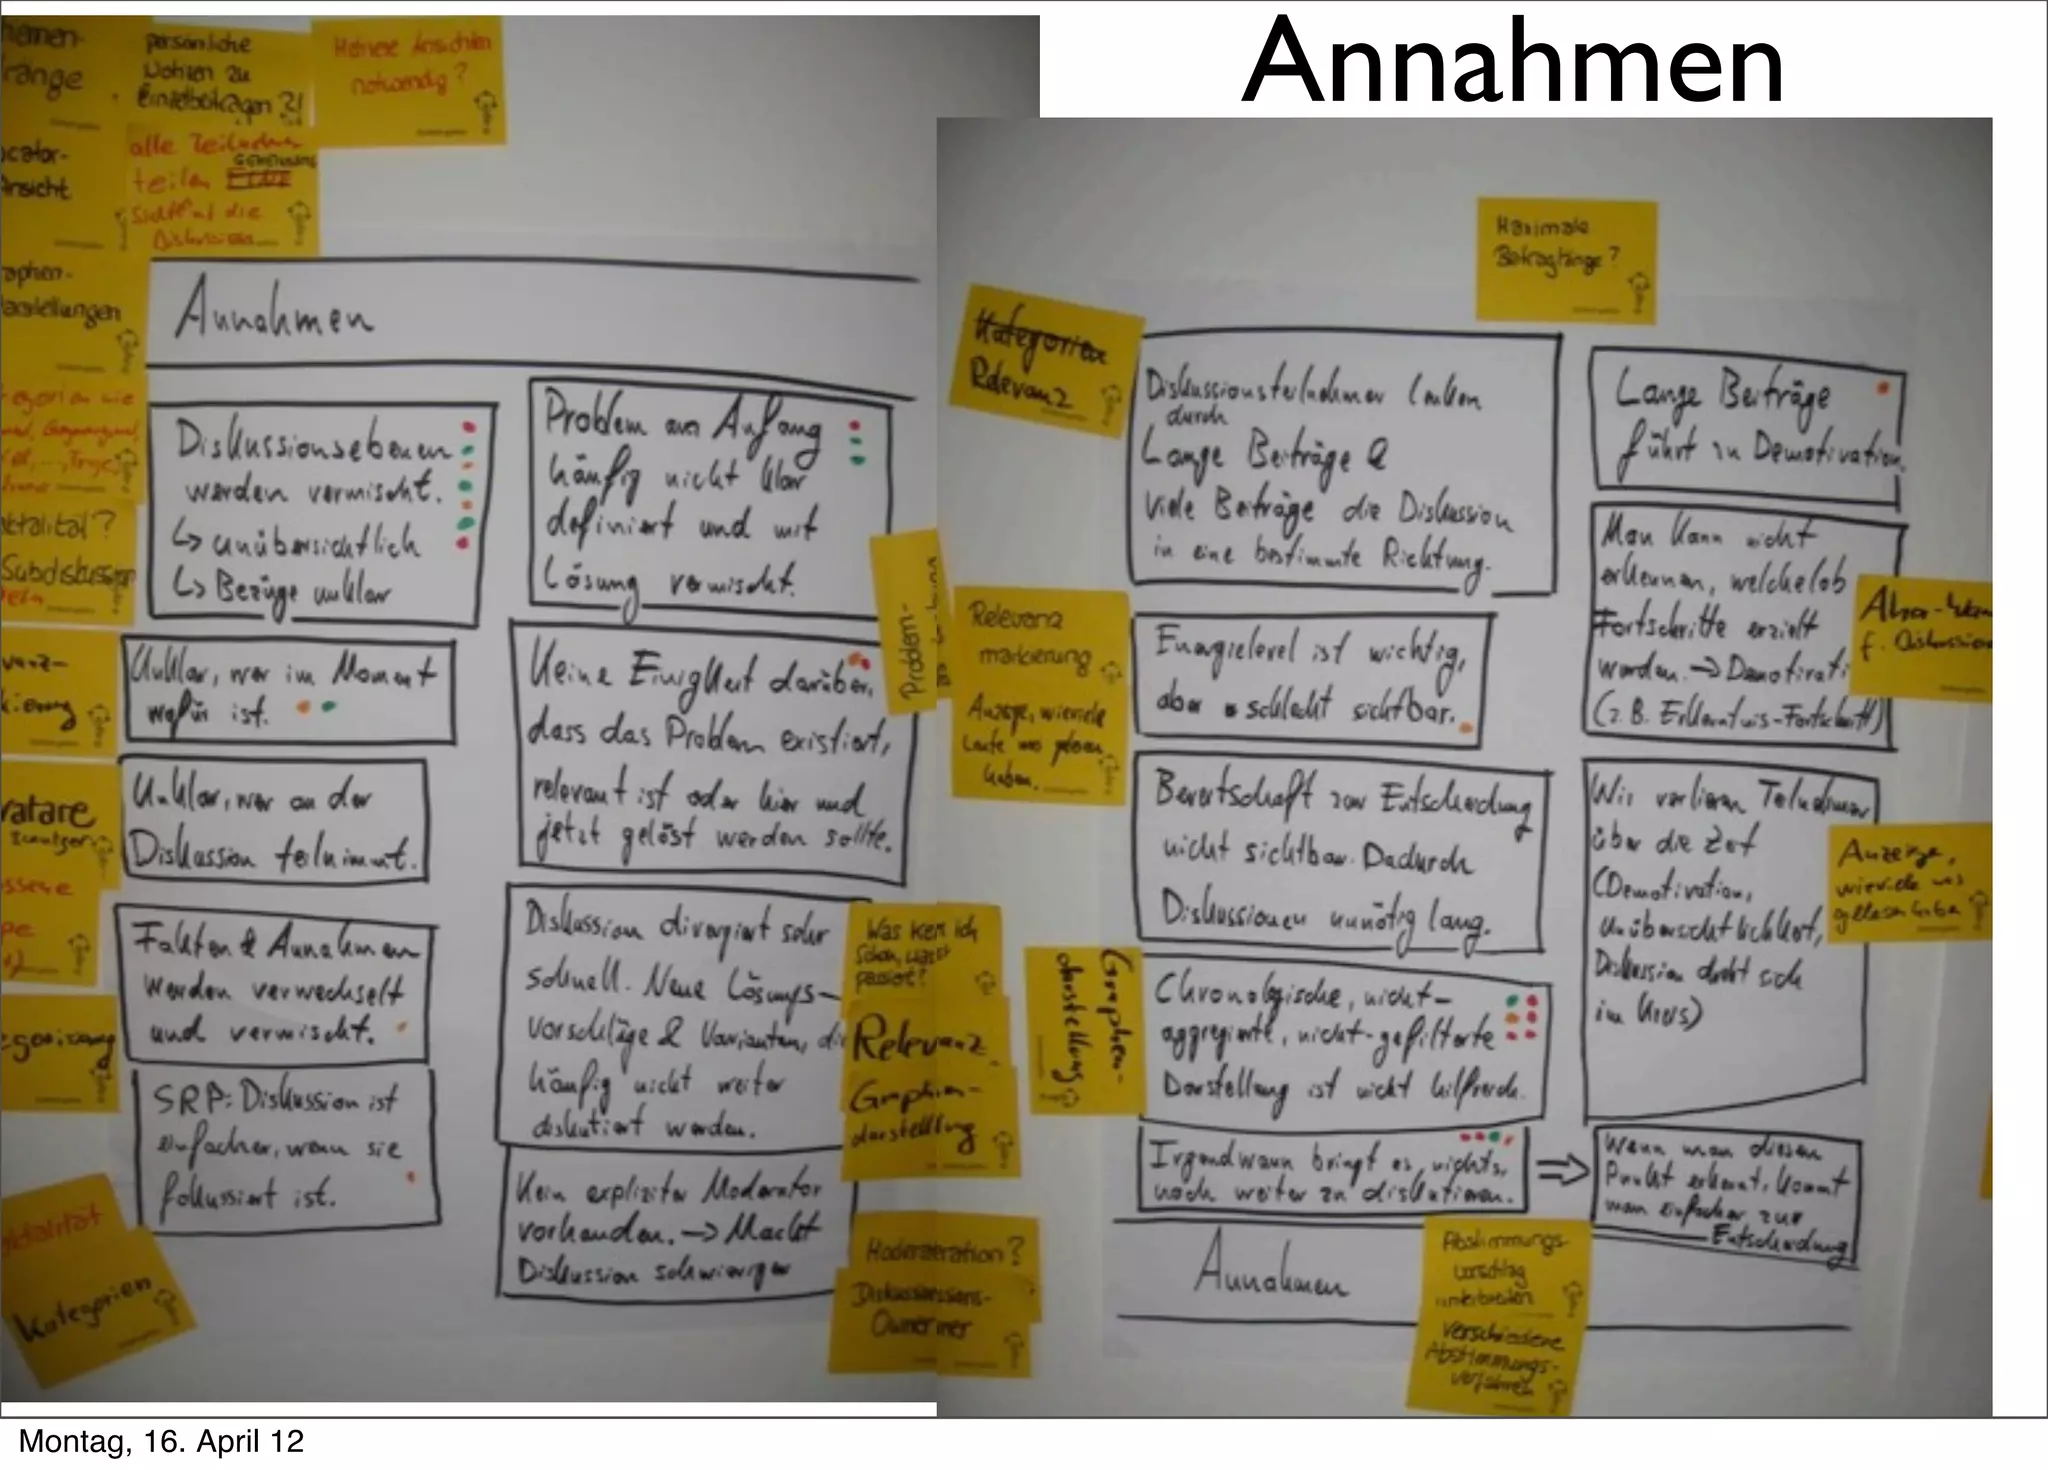 Annahmen
persönliche
Notizen zu
Einzelbeiträgen ?!
Mehrere Ansichten
notwendig?
alle Teilnehmer
teilen
GEMEINSAME
Sicht auf die
Diskussion
Ansicht
Annahmen
Diskussionsebenen
werden vermischt.
↳ unübersichtlich
↳ Bezüge unklar
Unklar, wer im Moment
wofür ist.
Unklar, wer an der
Diskussion teilnimmt.
Fakten & Annahmen
werden verwechselt
und vermischt.
SRP: Diskussion ist
einfacher, wenn sie
fokussiert ist.
Kategorien
Problem am Anfang
häufig nicht klar
definiert und mit
Lösung vermischt.
Problem-
Keine Einigkeit darüber,
dass das Problem existiert,
relevant ist oder hier und
jetzt gelöst werden sollte.
Diskussion divergiert sehr
schnell. Neue Lösungs-
vorschläge & Varianten, die
häufig nicht weiter
diskutiert werden.
Relevanz
Graphen-
darstellung
Kein expliziter Moderator
vorhanden. → Macht
Diskussion schwieriger
Moderation?
Maximale
Beitragslänge?
Kategorien
Relevanz
Diskussionsteilnehmer lenken
durch
Lange Beiträge &
viele Beiträge die Diskussion
in eine bestimmte Richtung.
Relevanz
markierung
Anzeige, wieviele
Leute
haben.
Energielevel ist wichtig,
aber schlecht sichtbar.
Bereitschaft zur Entscheidung
nicht sichtbar. Dadurch
Diskussionen unnötig lang.
Graphen-
darstellung
Chronologische, nicht-
aggregierte, nicht-gefilterte
Darstellung ist nicht hilfreich.
Irgendwann bringt es nichts,
noch weiter zu diskutieren.
⇒
Wenn man diesen
Punkt erkennt, kommt
man einfacher zur
Entscheidung
Lange Beiträge
führt zu Demotivation.
Man kann nicht
erkennen, welche/ob
Fortschritte erzielt
werden. → Demotivati
(z.B. Erkenntnis-Fortschritt)
f. Diskussion
Wir verlieren Teilnehmer
über die Zeit
(Demotivation,
Unübersichtlichkeit,
Diskussion dreht sich
im Kreis)
Anzeige,
wieviele es
gelesen haben
Annahmen
Abstimmungs-
vorschlag
unterbreiten
Verschiedene
Abstimmungs-
verfahren
Montag, 16. April 12